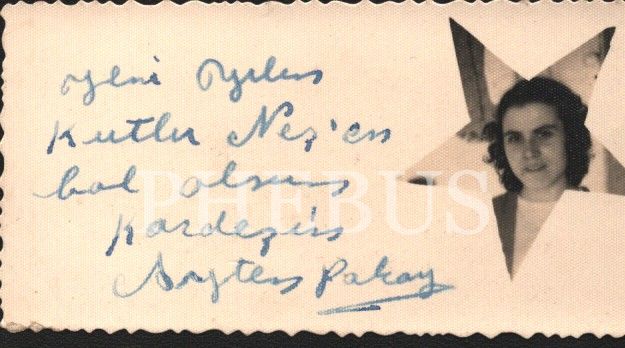 yeni yılın
Kutlu Neş'en
bol olsun
Kardeşin
Ayten Pakay
PHEBUS